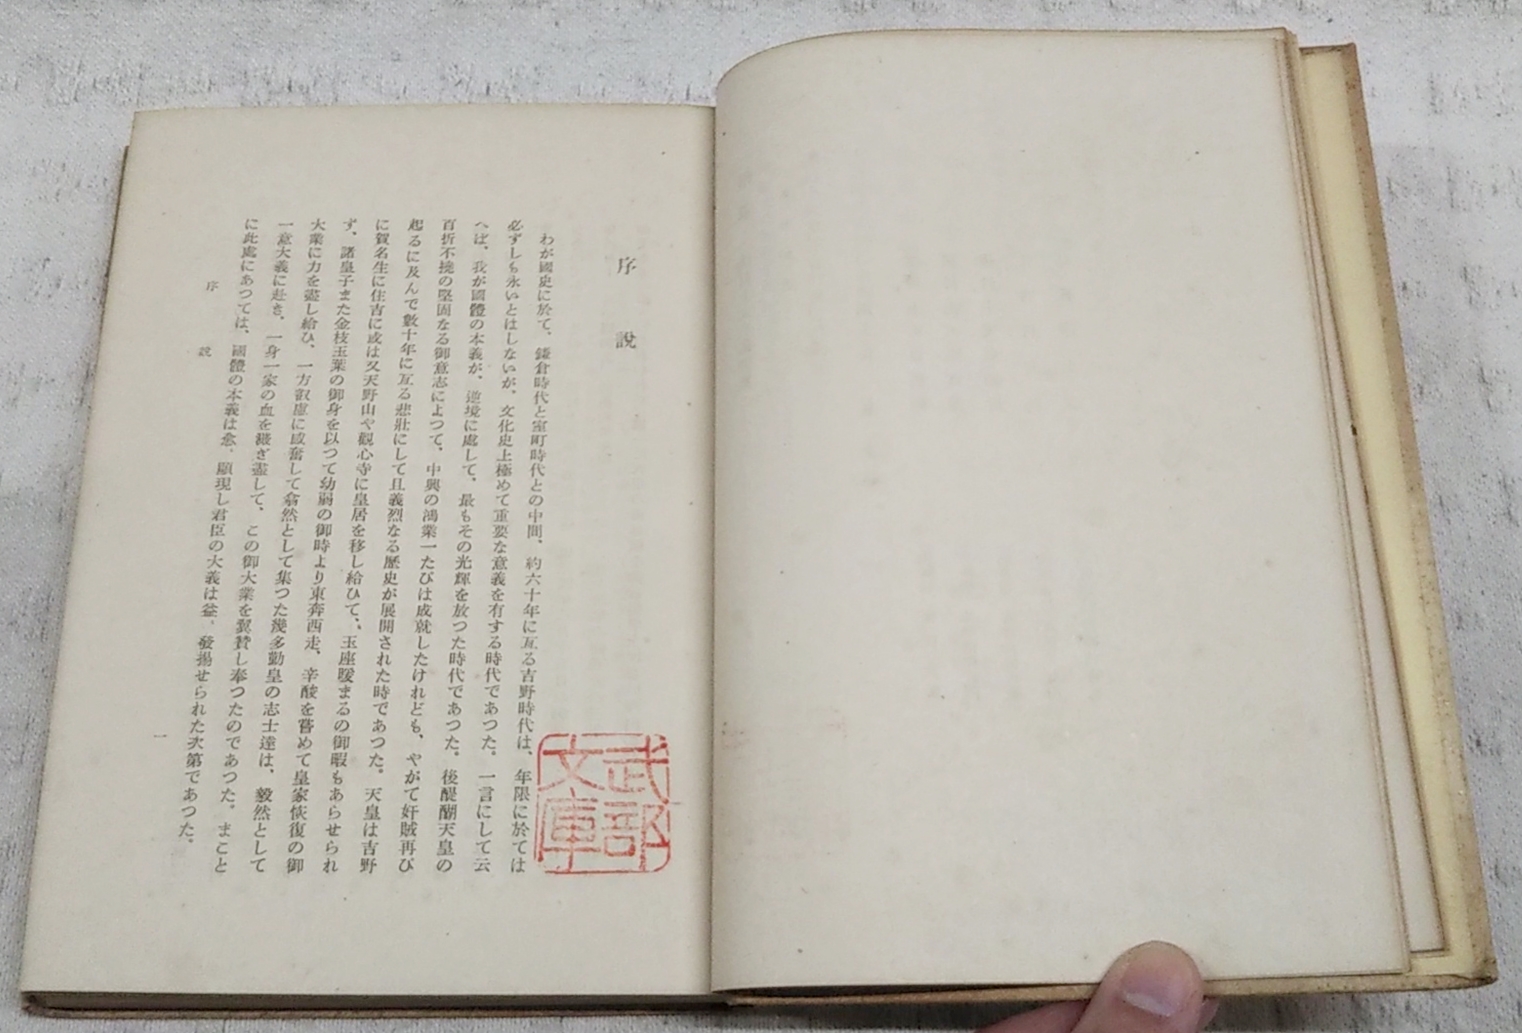 序說
わが國史に於て、鎌倉時代と室町時代との中間、約六十年に亙る吉野時代は、年限に於ては
必ずしも永いとはしないが、文化史上極めて重要な意義を有する時代であつた。一言にして云
へば、我が國體の本義が、逆境に處して、最もその光輝を放つた時代であつた。後醍醐天皇の
百折不撓の堅固なる御意志によつて、中興の鴻業一たびは成就したけれども、やがて奸賊再び
起るに及んで數十年に亙る悲壯にして且義烈なる歷史が展開された時であつた。天皇は吉野
に賀名生に住吉に或は又天野山や觀心寺に皇居を移し給ひて、玉座暖まるの御暇もあらせられ
ず、諸皇子また金枝玉葉の御身を以つて幼弱の御時より東奔西走、辛酸を嘗めて皇家恢復の御
大業に力を盡し給ひ、一方叡慮に感奮して翕然として集つた幾多勤皇の志士達は、毅然として
一意大義に赴き、一身一家の血を繼ぎ盡して、この御大業を翼贊し奉つたのであつた。まこと
に此處にあつては、國體の本義は愈〻顯現し君臣の大義は益〻發揚せられた次第であつた。
序說
一
武部
文庫